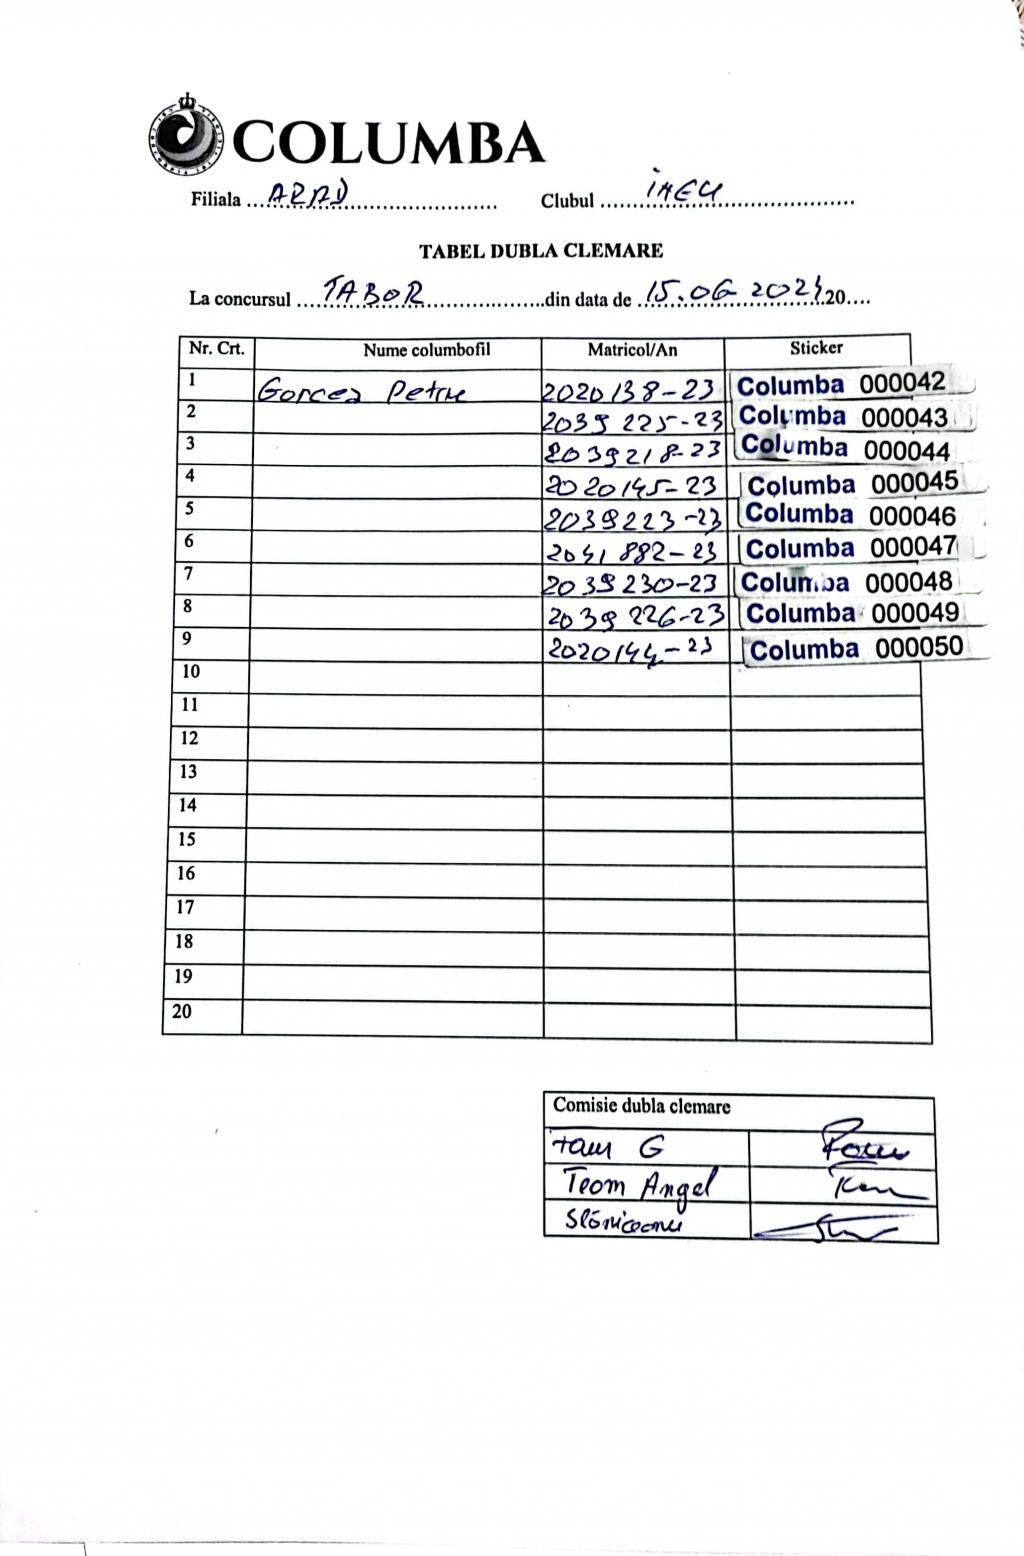 COLUMBA
Filiala ... ARAD ... Clubul ... INEU ...
TABEL DUBLA CLEMARE
La concursul ... TABOR ... din data de ... 15.06 2024 .20....
Nr. Crt. Nume columbofil Matricol/An Sticker
1 Gorcea Petru 2020138-23 Columba 000042
2 2039225-23 Columba 000043
3 2039218-23 Columba 000044
4 2020145-23 Columba 000045
5 2039223-23 Columba 000046
6 2041882-23 Columba 000047
7 2039230-23 Columba 000048
8 2039226-23 Columba 000049
9 2020144-23 Columba 000050
10
11
12
13
14
15
16
17
18
19
20
Comisie dubla clemare
G
Teom Angel